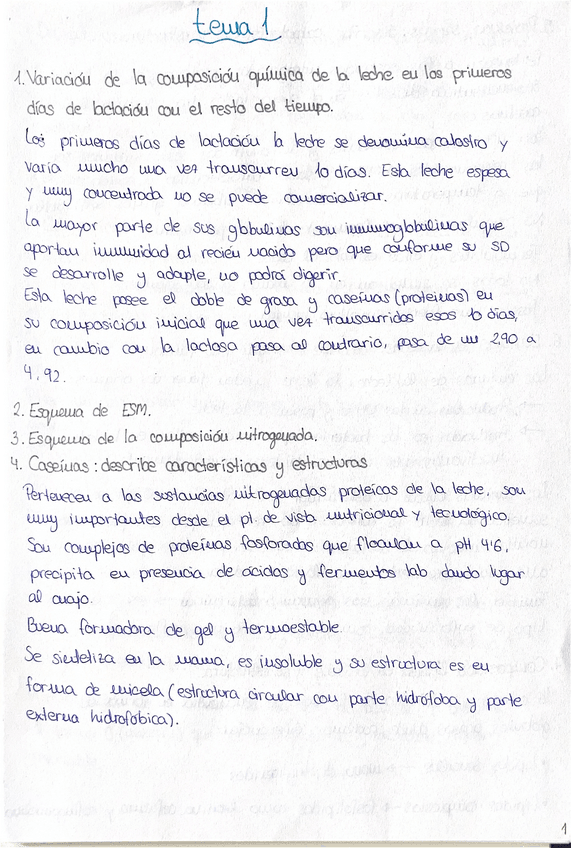 tema 1
1. Variación de la composición química de la leche en los primeros
días de lactación con el resto del tiempo.
Los primeros días de lactación la leche se denomina calostro y
varía mucho una vez transcurren 10 días. Esta leche espesa
y muy concentrada no se puede comercializar.
La mayor parte de sus globulinas son inmunoglobulinas que
aportan inmunidad al recién nacido pero que conforme su SD
se desarrolle y adapte, no podrá digerir.
Esta leche posee el doble de grasa y caseínas (proteínas) en
su composición inicial que una vez transcurridos esos 10 días,
en cambio con la lactosa pasa al contrario, pasa de un 2,90 a
4,92.
2. Esquema de ESM.
3. Esquema de la composición nitrogenada.
4. Caseínas: describe características y estructuras
Pertenecen a las sustancias nitrogenadas proteicas de la leche, son
muy importantes desde el pt de vista nutricional y tecnológico.
Son complejos de proteínas fosforados que floculan a pH 4'6,
precipita en presencia de ácidos y fermentos lab dando lugar
al cuajo.
Buena formadora de gel y termoestable.
Se sintetiza en la mama, es insoluble y su estructura es en
forma de micela (estructura circular con parte hidrófoba y parte
externa hidrofóbica).
1